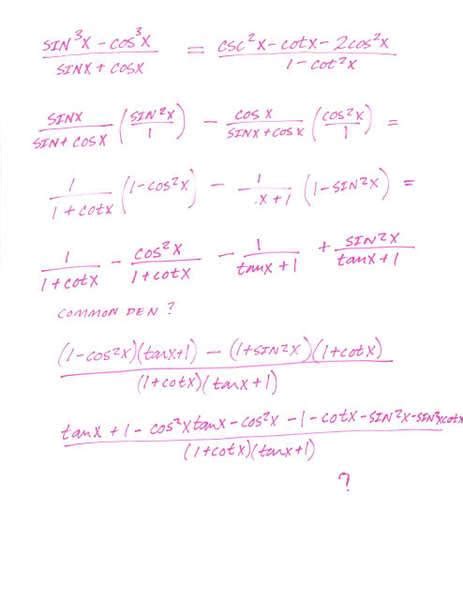 SIN³X - COS³X / SINX + COSX = CSC²X - COTX - 2COS²X / 1 - COT²X
SINX / SIN+ COSX (SIN²X / 1) - COS X / SINX + COS X (COS²X / 1) =
1 / 1 + cotx (1 - cos²x) - 1 / .x + 1 (1 - SIN²X) =
1 / 1 + cotx - COS²X / 1 + cotx - 1 / tanx + 1 + SIN²X / tanx + 1
COMMON DEN ?
(1 - cos²x)(tanx+1) - (1+SIN²X)(1+cotx) / (1+cotx)(tanx+1)
tanx + 1 - cos²xtanx - cos²x - 1 - cotx - SIN²X - SIN²Xcotx / (1+cotx)(tanx+1)
?